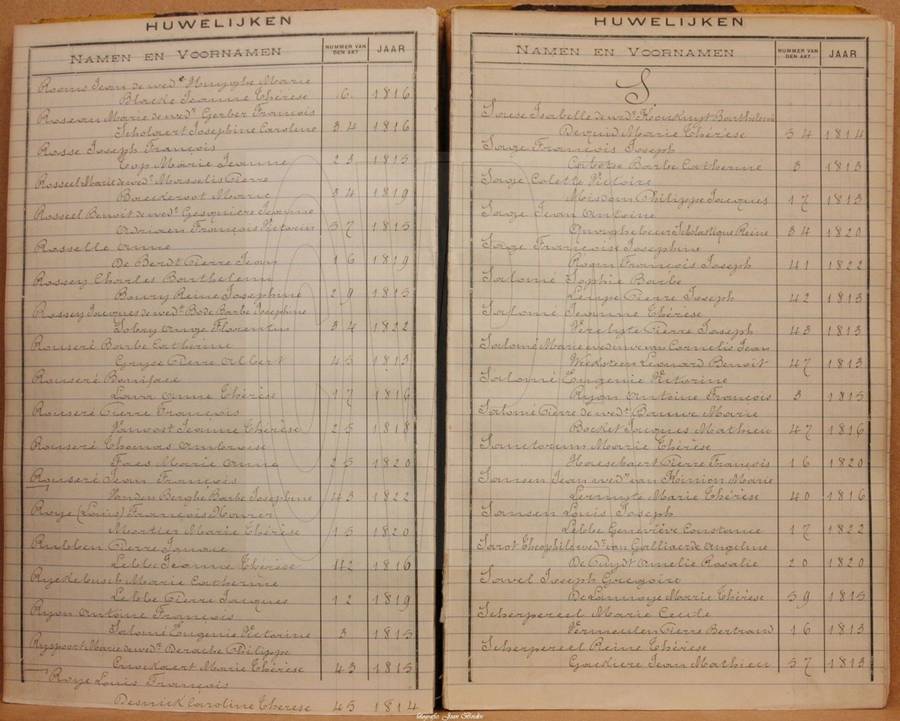 HUWELIJKEN
NAMEN EN VOORNAMEN NUMMER VAN DEN AKT JAAR
Rooms Jean de wede Huyghe Marie
Blaeke Jeanne Thérèse 6 1816
Roseau Marie de wedr Gerber François
Scholaert Josephine Caroline 34 1816
Rosse Joseph François
Marie Jeanne 23 1815
Rosseel Marie de wedr Masselis Pierre
Marie 34 1819
Rosseel Benoit de wedr Gesquière Jeanne
Adriaen François Victoire 57 1815
Rosselle Anne
De Berdt Pierre Jean 16 1819
Rossey Charles Barthelemi
Boury Reine Josephine 29 1815
Rossey Jacques de wedr Bode Barbe Josephine
Florentine 34 1822
Rouseré Barbe Catherine
Gruse Pierre Albert 45 1813
Rouseré Boniface
Anne Thérèse 17 1816
Rouseré Pierre François
Vanoost Jeanne Thérèse 25 1818
Rouseré Thomas Ambroise
Faes Marie Anne 25 1820
Rouseré Jean François
Vanden Berghe Barbe Josephine 43 1822
Roye (Louis) François
Mortier Marie Thérèse 15 1820
Rubben Pierre
Lebbe Jeanne Thérèse 42 1816
Marie Catherine
Lebbe Pierre Jacques 12 1819
Ryon Antoine François
Salomé Eugenie Victorine 3 1815
Ryspoort Marie de wedr Derache Philippe
Crockaert Marie Thérèse 43 1815
Roye Louis François
Desnick Caroline Therese 45 1814
HUWELIJKEN
NAMEN EN VOORNAMEN NUMMER VAN DEN AKT JAAR
S
Isabelle de wedr
Marie Thérèse 54 1814
Sage François Joseph
Barbe Catherine 3 1813
Sage Colette Victoire
Misdom Philippe Jacques 17 1813
Sage Jean Antoine
Quaghebeur Scholastique Reine 34 1820
Sage Françoise Josephine
François Joseph 41 1822
Salomé Sophie Barbe
Pierre Joseph 42 1813
Salomé Jeanne Thérèse
Pierre Joseph 43 1813
Salomé Marie weduwe van Cornelis Jean
Weeksteen Leonard Benoit 47 1813
Salomé Eugenie Victorine
Ryon Antoine François 3 1815
Salomé Pierre de wedr Bauwe Marie
Jacques Mathieu 47 1816
Marie Thérèse
Haesebaert Pierre François 16 1820
Sansen Jean wedr van Marie
Lermyte Marie Thérèse 40 1816
Sansen Louis Joseph
Lebbe Geneviève Constance 17 1822
Sarot Theophile wedr van Galliaerde Angeline
De Puydt Amelie Rosalie 20 1820
Joseph Gregoire
De Lannoye Marie Thérèse 59 1815
Scherpereel Marie Cecile
Vermeulen Pierre Bertrand 16 1813
Scherpereel Reine Thérèse
Jean Mathieu 57 1813